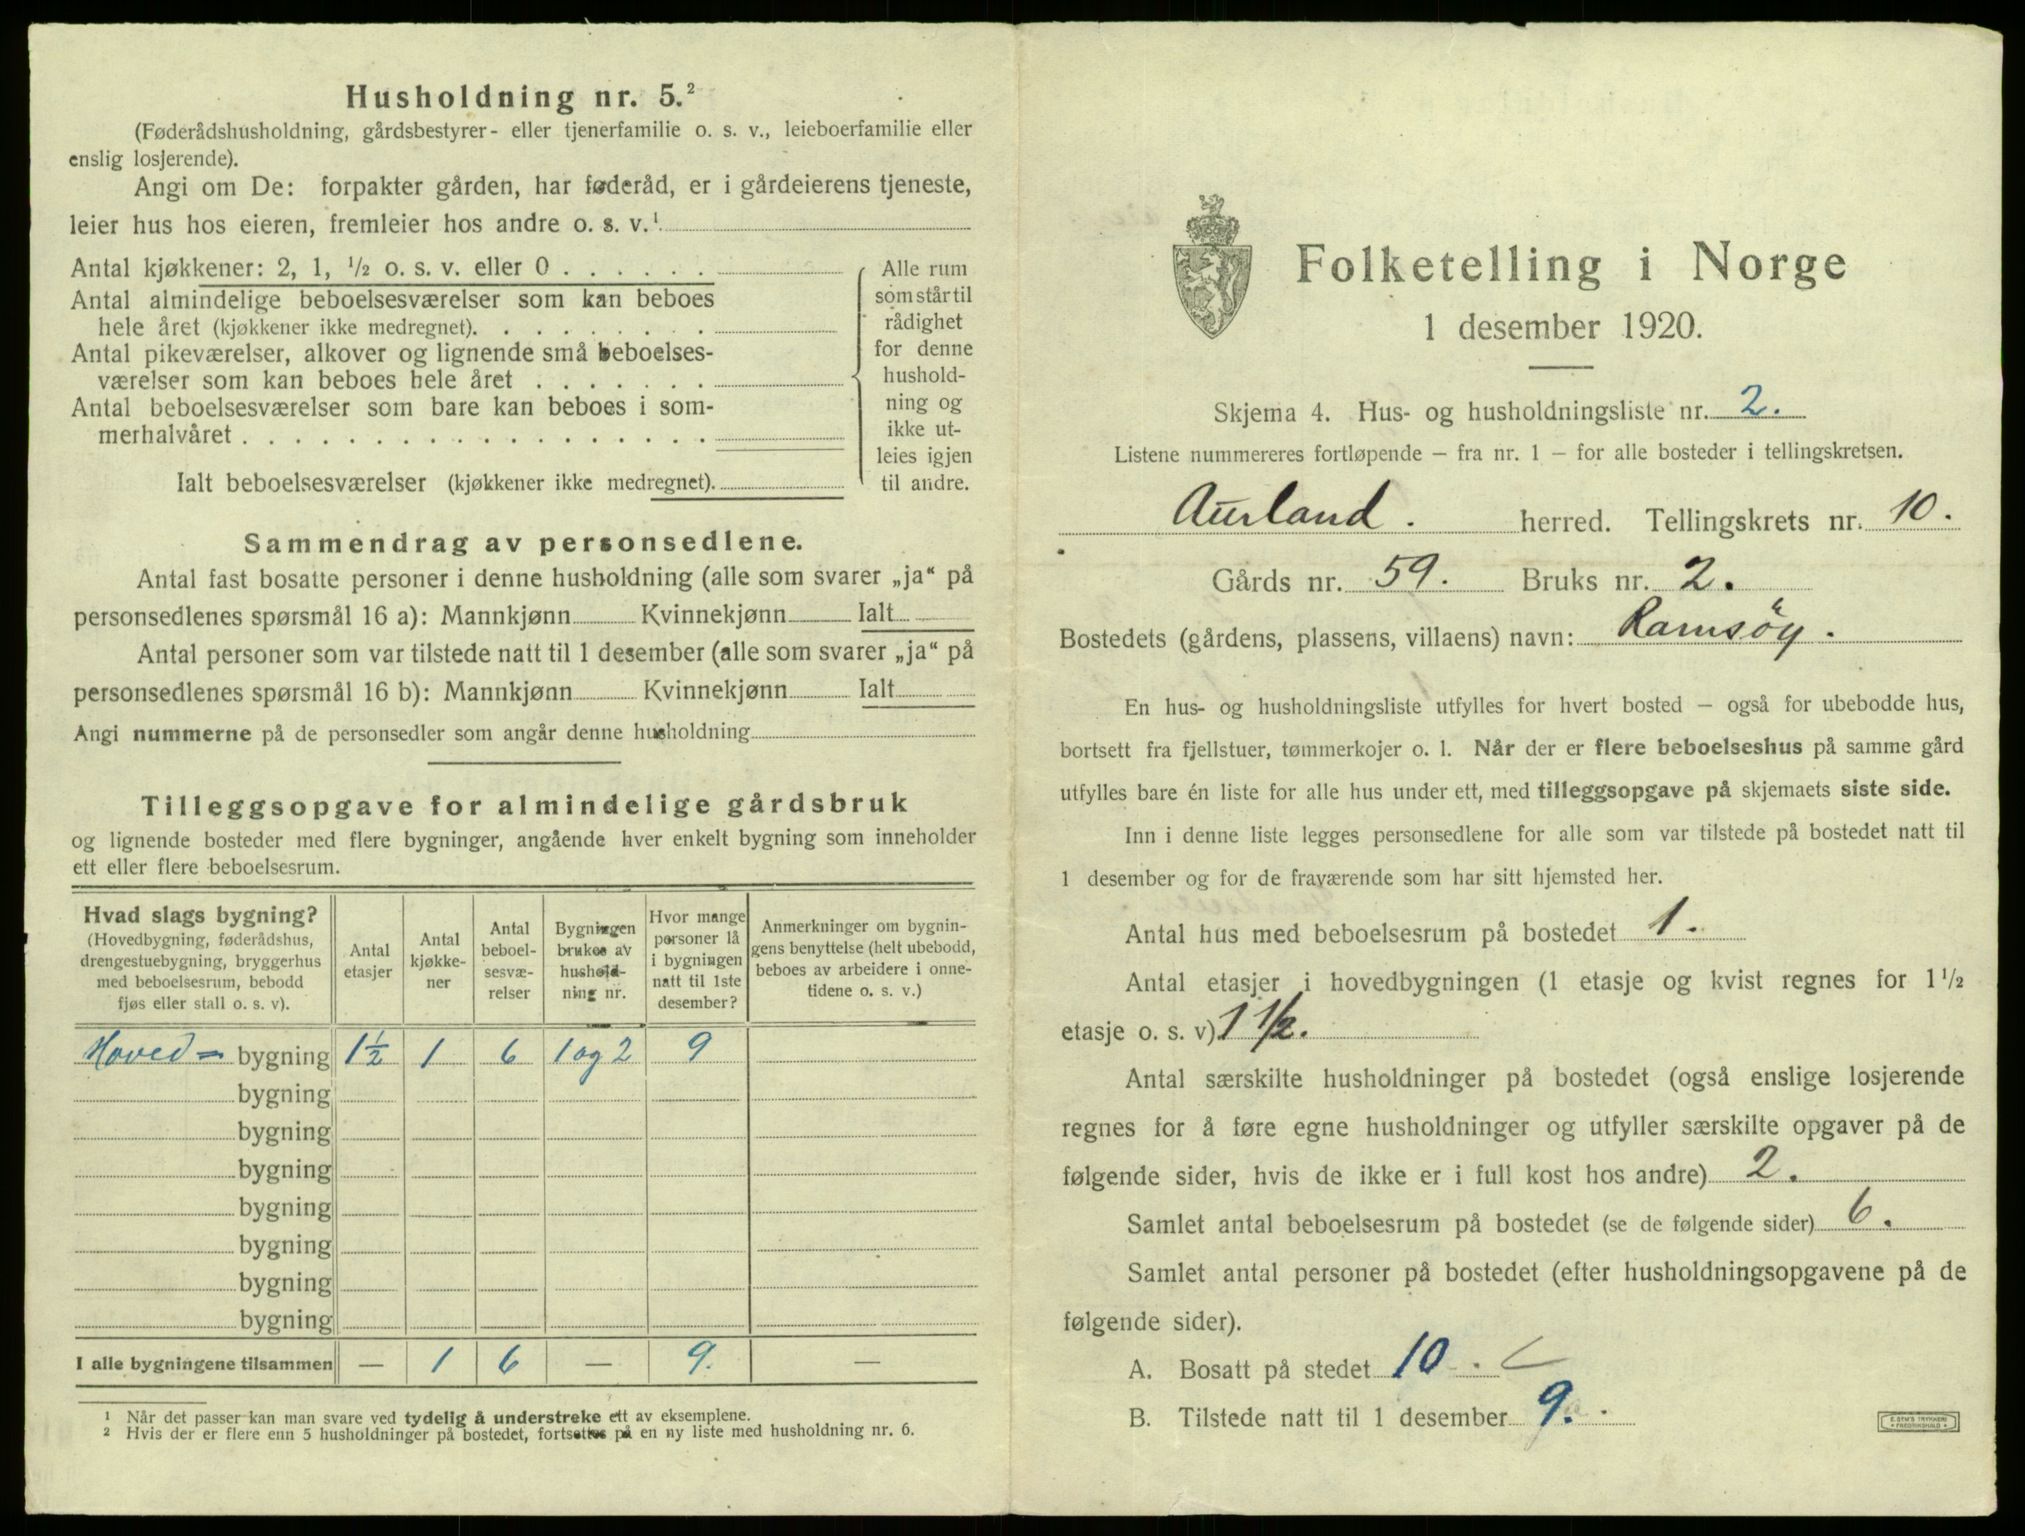 Husholdning nr. 5.²
(Føderådshusholdning, gårdsbestyrer- eller tjenerfamilie o. s. v., leieboerfamilie eller
enslig losjerende).
Angi om De: forpakter gården, har føderåd, er i gårdeierens tjeneste,
leier hus hos eieren, fremleier hos andre o. s. v.¹
Antal kjøkkener: 2, 1, ½ o. s. v. eller 0 . . . . . .
Antal almindelige beboelsesværelser som kan beboes
hele året (kjøkkener ikke medregnet). . . . . . . . .
Antal pikeværelser, alkover og lignende små beboelses-
værelser som kan beboes hele året . . . . . . .
Antal beboelsesværelser som bare kan beboes i som-
merhalvåret . . . . . . . . . . . . . . . . . .
Ialt beboelsesværelser (kjøkkener ikke medregnet).
Alle rum
som står til
rådighet
for denne
hushold-
ning og
ikke ut-
leies igjen
til andre.
Sammendrag av personsedlene.
Antal fast bosatte personer i denne husholdning (alle som svarer „ja“ på
personsedlenes spørsmål 16 a): Mannkjønn Kvinnekjønn Ialt
Antal personer som var tilstede natt til 1 desember (alle som svarer „ja“ på
personsedlenes spørsmål 16 b): Mannkjønn Kvinnekjønn Ialt
Angi nummerne på de personsedler som angår denne husholdning
Tilleggsopgave for almindelige gårdsbruk
og lignende bosteder med flere bygninger, angående hver enkelt bygning som inneholder
ett eller flere beboelsesrum.
Hvad slags bygning?
(Hovedbygning, føderådshus,
drengestuebygning, bryggerhus
med beboelsesrum, bebodd
fjøs eller stall o. s. v).
Antal
etasjer
Antal
kjøkke-
ner
Antal
beboel-
sesvæ-
relser
Bygningen
brukes av
hushold-
ning nr.
Hvor mange
personer lå
i bygningen
natt til 1ste
desember?
Anmerkninger om bygnin-
gens benyttelse (helt ubebodd,
beboes av arbeidere i onne-
tidene o. s. v.)
Hoved= bygning 1½ 1 6 1 og 2 9
bygning
bygning
bygning
bygning
bygning
bygning
bygning
I alle bygningene tilsammen — 1 6 — 9. —
¹ Når det passer kan man svare ved tydelig å understreke ett av eksemplene.
² Hvis der er flere enn 5 husholdninger på bostedet, fortsettes på en ny liste med husholdning nr. 6.
Folketelling i Norge
1 desember 1920.
Skjema 4. Hus- og husholdningsliste nr. 2.
Listene nummereres fortløpende – fra nr. 1 – for alle bosteder i tellingskretsen.
Aurland. herred. Tellingskrets nr. 10.
Gårds nr. 59. Bruks nr. 2.
Bostedets (gårdens, plassens, villaens) navn: Ramsöy.
En hus- og husholdningsliste utfylles for hvert bosted – også for ubebodde hus,
bortsett fra fjellstuer, tømmerkojer o. l. Når der er flere beboelseshus på samme gård
utfylles bare én liste for alle hus under ett, med tilleggsopgave på skjemaets siste side.
Inn i denne liste legges personsedlene for alle som var tilstede på bostedet natt til
1 desember og for de fraværende som har sitt hjemsted her.
Antal hus med beboelsesrum på bostedet 1.
Antal etasjer i hovedbygningen (1 etasje og kvist regnes for 1 ½
etasje o. s. v). 1 ½.
Antal særskilte husholdninger på bostedet (også enslige losjerende
regnes for å føre egne husholdninger og utfyller særskilte opgaver på de
følgende sider, hvis de ikke er i full kost hos andre) 2.
Samlet antal beboelsesrum på bostedet (se de følgende sider) 6.
Samlet antal personer på bostedet (efter husholdningsopgavene på de
følgende sider).
A. Bosatt på stedet 10.
B. Tilstede natt til 1 desember 9.
E. SEM'S TRYKKERI
FREDRIKSHALD